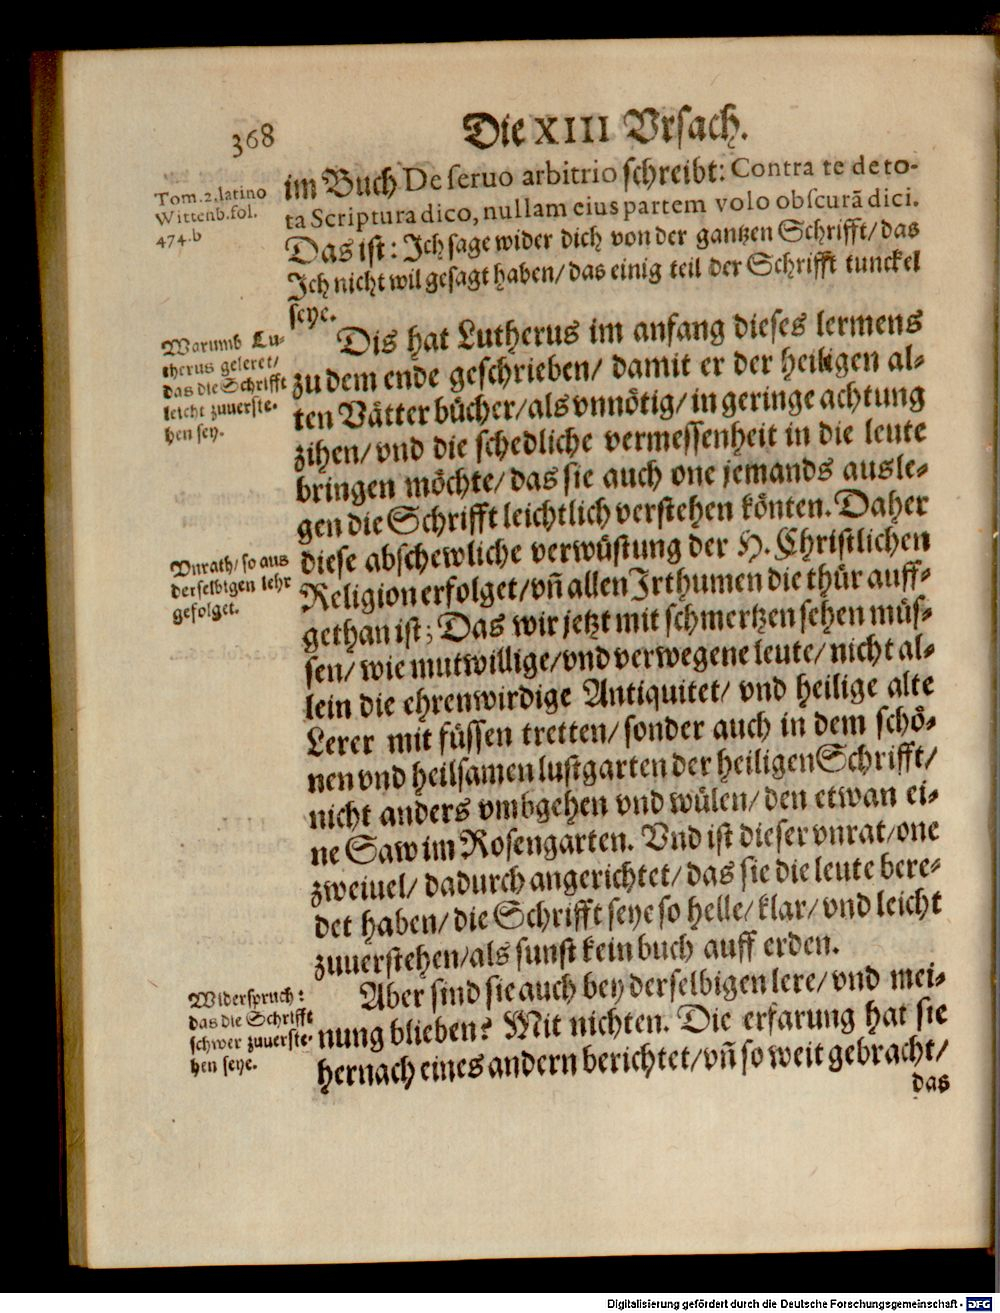 368
Die XIII Vrsach.
Tom.2.latino
Wittenb.fol.
474.b
im Buch De seruo arbitrio schreibt: Contra te de to-
ta Scriptura dico, nullam eius partem volo obscurã dici.
Das ist: Ich sage wider dich von der gantzen Schrifft/ das
Ich nicht wil gesagt haben/ das einig teil der Schrifft tunckel
seye.
Warumb Lu-
therus geleret/
das die Schrifft
leicht zuuerste-
hen sey.
Dis hat Lutherus im anfang dieses lermens
zu dem ende geschrieben/ damit er der heiligen al-
ten Vätter bücher/ als vnnötig/ in geringe achtung
zihen/ vnd die schedliche vermessenheit in die leute
bringen möchte/ das sie auch one jemands ausle-
gen die Schrifft leichtlich verstehen könten. Daher
Vnrath/ so aus
derselbigen lehr
gefolget.
diese abschewliche verwüstung der H. Christlichen
Religion erfolget/ vñ allen Irthumen die thür auff-
gethan ist; Das wir jetzt mit schmertzen sehen müs-
sen/ wie mutwillige/ vnd verwegene leute/ nicht al-
lein die ehrenwirdige Antiquitet/ vnd heilige alte
Lerer mit füssen tretten/ sonder auch in dem schö-
nen vnd heilsamen lustgarten der heiligen Schrifft/
nicht anders vmbgehen vnd wülen/ den etwan ei-
ne Saw im Rosengarten. Vnd ist dieser vnrat/ one
zweiuel/ dadurch angerichtet/ das sie die leute bere-
det haben/ die Schrifft seye so helle/ klar/ vnd leicht
zuuerstehen/ als sunst kein buch auff erden.
Widerspruch:
das die Schrifft
schwer zuuerste-
hen seye.
Aber sind sie auch bey derselbigen lere/ vnd mei-
nung blieben? Mit nichten. Die erfarung hat sie
hernach eines andern berichtet/ vñ so weit gebracht/
das
Digitalisierung gefördert durch die Deutsche Forschungsgemeinschaft - DFG